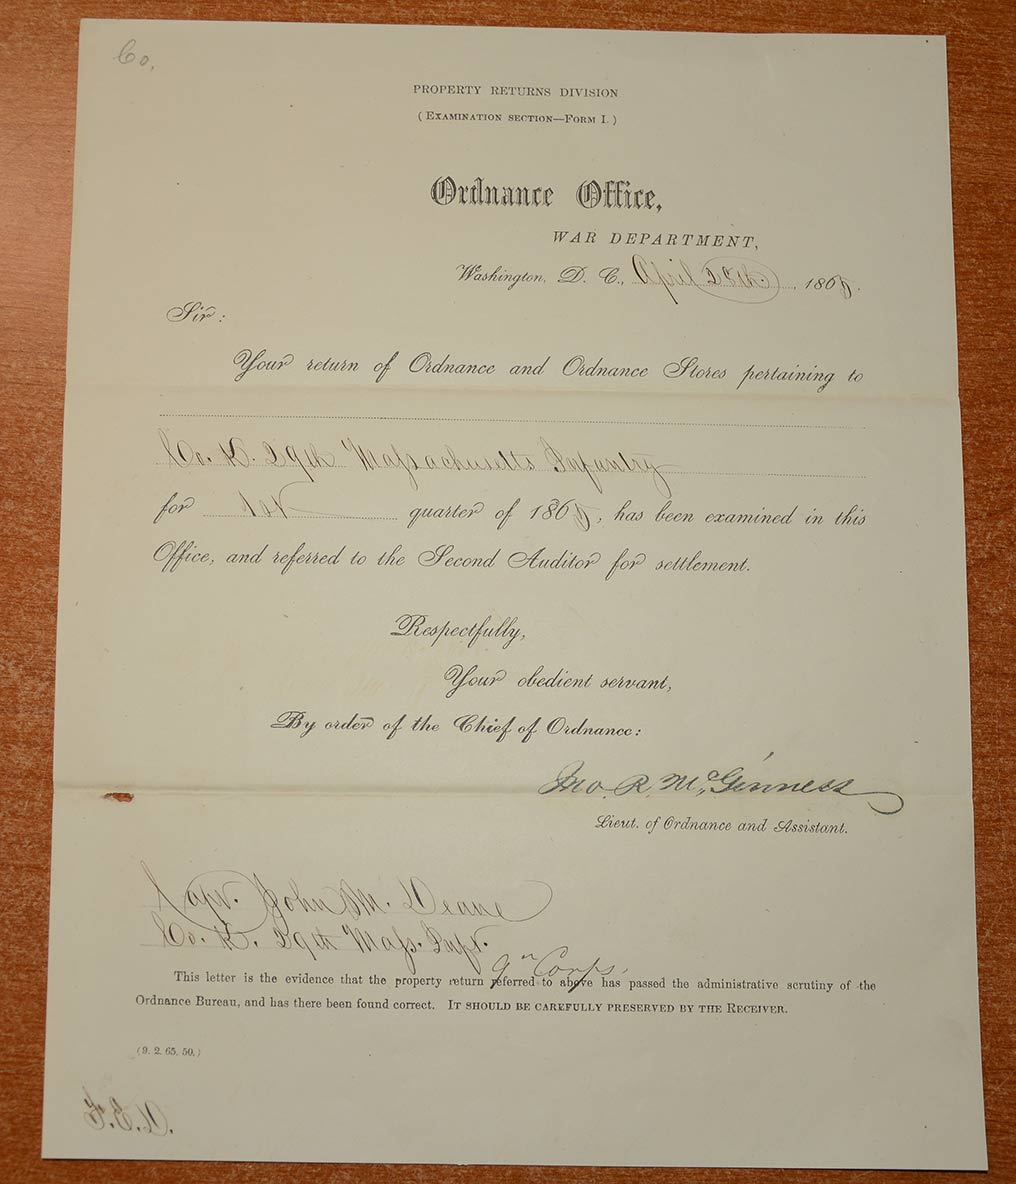 Co.
PROPERTY RETURNS DIVISION
(EXAMINATION SECTION—FORM I.)
Ordnance Office,
WAR DEPARTMENT,
Washington, D. C., April 28th. 1865.
Sir:
Your return of Ordnance and Ordnance Stores pertaining to
Co. K. 29th Massachusetts Infantry
for 1st quarter of 1865, has been examined in this
Office, and referred to the Second Auditor for settlement.
Respectfully,
Your obedient servant,
By order of the Chief of Ordnance:
Jno. R. McGinness
Lieut. of Ordnance and Assistant.
Capt. John M. Deane
Co. K. 29th Mass. Inft.
9th Corps.
This letter is the evidence that the property return referred to above has passed the administrative scrutiny of the
Ordnance Bureau, and has there been found correct. IT SHOULD BE CAREFULLY PRESERVED BY THE RECEIVER.
(9. 2. 65. 50.)